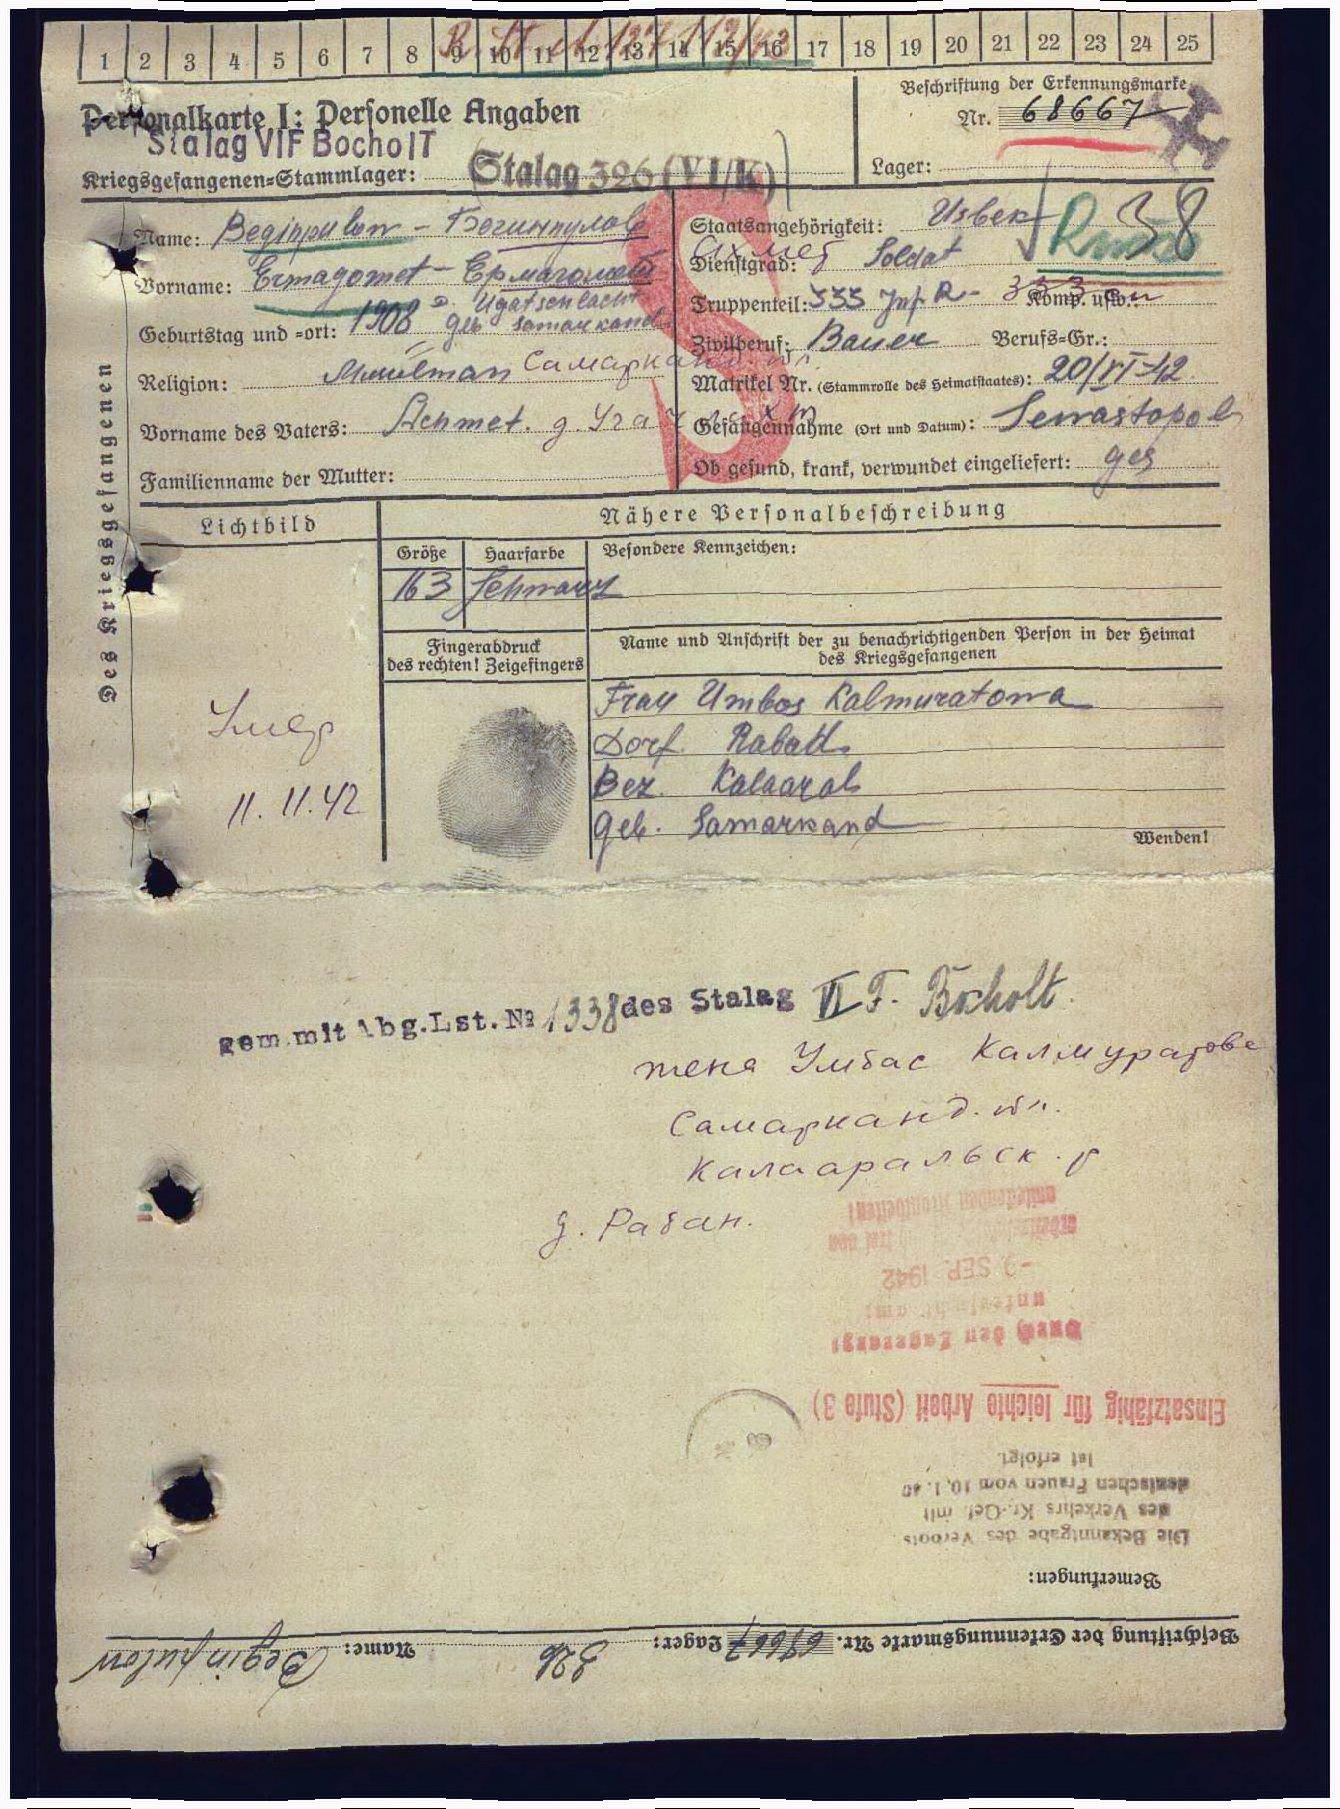 1 2 3 4 5 6 7 8 9 10 11 12 13 14 15 16 17 18 19 20 21 22 23 24 25
Personalkarte I: Personelle Angaben
Beschriftung der Erkennungsmarke
Nr. 68667
Stalag VIF Bocholt
Kriegsgefangenen-Stammlager: Stalag 326 (VI/K)
Lager:
Des Kriegsgefangenen
Name: Beginpulow - Богинпулов
Staatsangehörigkeit: Usbek
38
Ахмед
Vorname: Ermagomet - Ермагомет
Dienstgrad: Soldat
Geburtstag und -ort: 1908 geb Samarkand
Truppenteil: 333 Inf R- Komp. usw.:
333
Zivilberuf: Bauer Berufs-Gr.:
Religion: Muselman Самарканд.
Matrikel Nr. (Stammrolle des Heimatstaates): 20/VI 42
Vorname des Vaters: Achmet. д.
Gefangennahme (Ort und Datum): Sewastopol
Familienname der Mutter:
Ob gesund, krank, verwundet eingeliefert: ges
Lichtbild
Nähere Personalbeschreibung
Größe Haarfarbe Besondere Kennzeichen:
163 Schwarz
Fingerabdruck
des rechten! Zeigefingers
Name und Anschrift der zu benachrichtigenden Person in der Heimat
des Kriegsgefangenen
Frau Umbos Kalmuratowa
Dorf Rabatt
Bez. Kalaaral
Geb. Samarkand
Умер
11.11.42
Wenden!
gem. mit Abg.Lst. № 1338 des Stalag VI F. Bocholt.
жена Умбас Калмуратова
Самарканд. обл.
Калааральск. р
д. Рабан.
- 9. SEP. 1942
Durch den Lagerarzt
Einsatzfähig für leichte Arbeit (Stufe 3)
Die Bekanntgabe des Verbots
des Verkehrs Kr.-Gef. mit
deutschen Frauen vom 10.1.40
ist erfolgt.
Bemerkungen:
Beschriftung der Erkennungsmarke Nr. 68667 Lager: 326 Name: Beginpulow